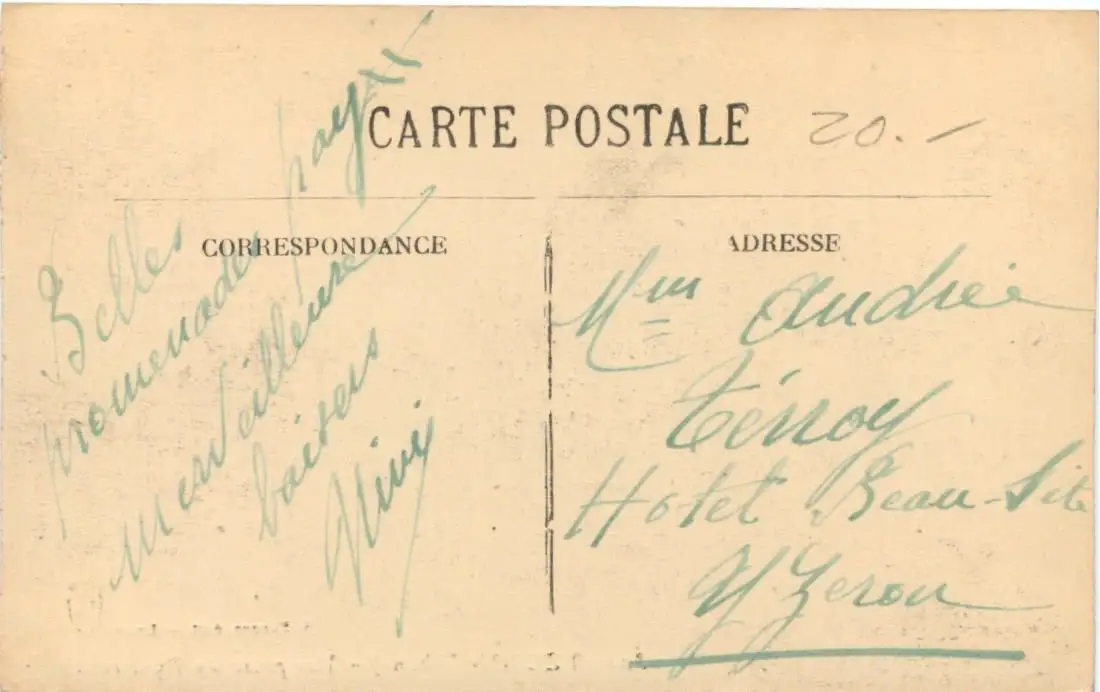 CARTE POSTALE
20.-
CORRESPONDANCE
Belles
promenades pays
merveilleux
baisers
ADRESSE
Mme Andrée
Hotel Beau-Site
Yzeron